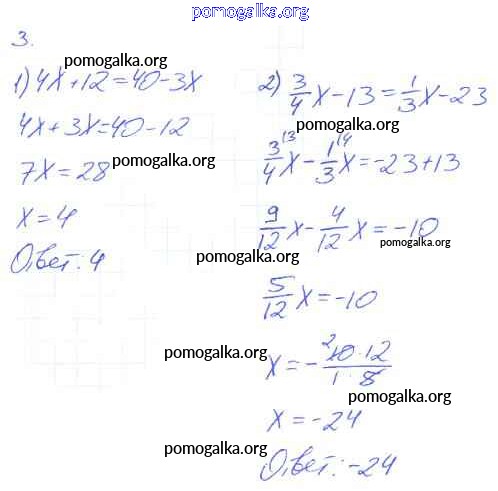 pomogalka.org
3.
pomogalka.org
1) 4x+12=40-3x
4x+3x=40-12
pomogalka.org
7x=28
x=4
Ответ: 4
pomogalka.org
2) 3/4x-13=1/3x-23
pomogalka.org
3/4^{\3}x-1/3^{\4}x=-23+13
9/12x-4/12x=-10
pomogalka.org
pomogalka.org
5/12x=-10
pomogalka.org
x=-^{2}10·12/1·5
pomogalka.org
x=-24
pomogalka.org
Ответ: -24